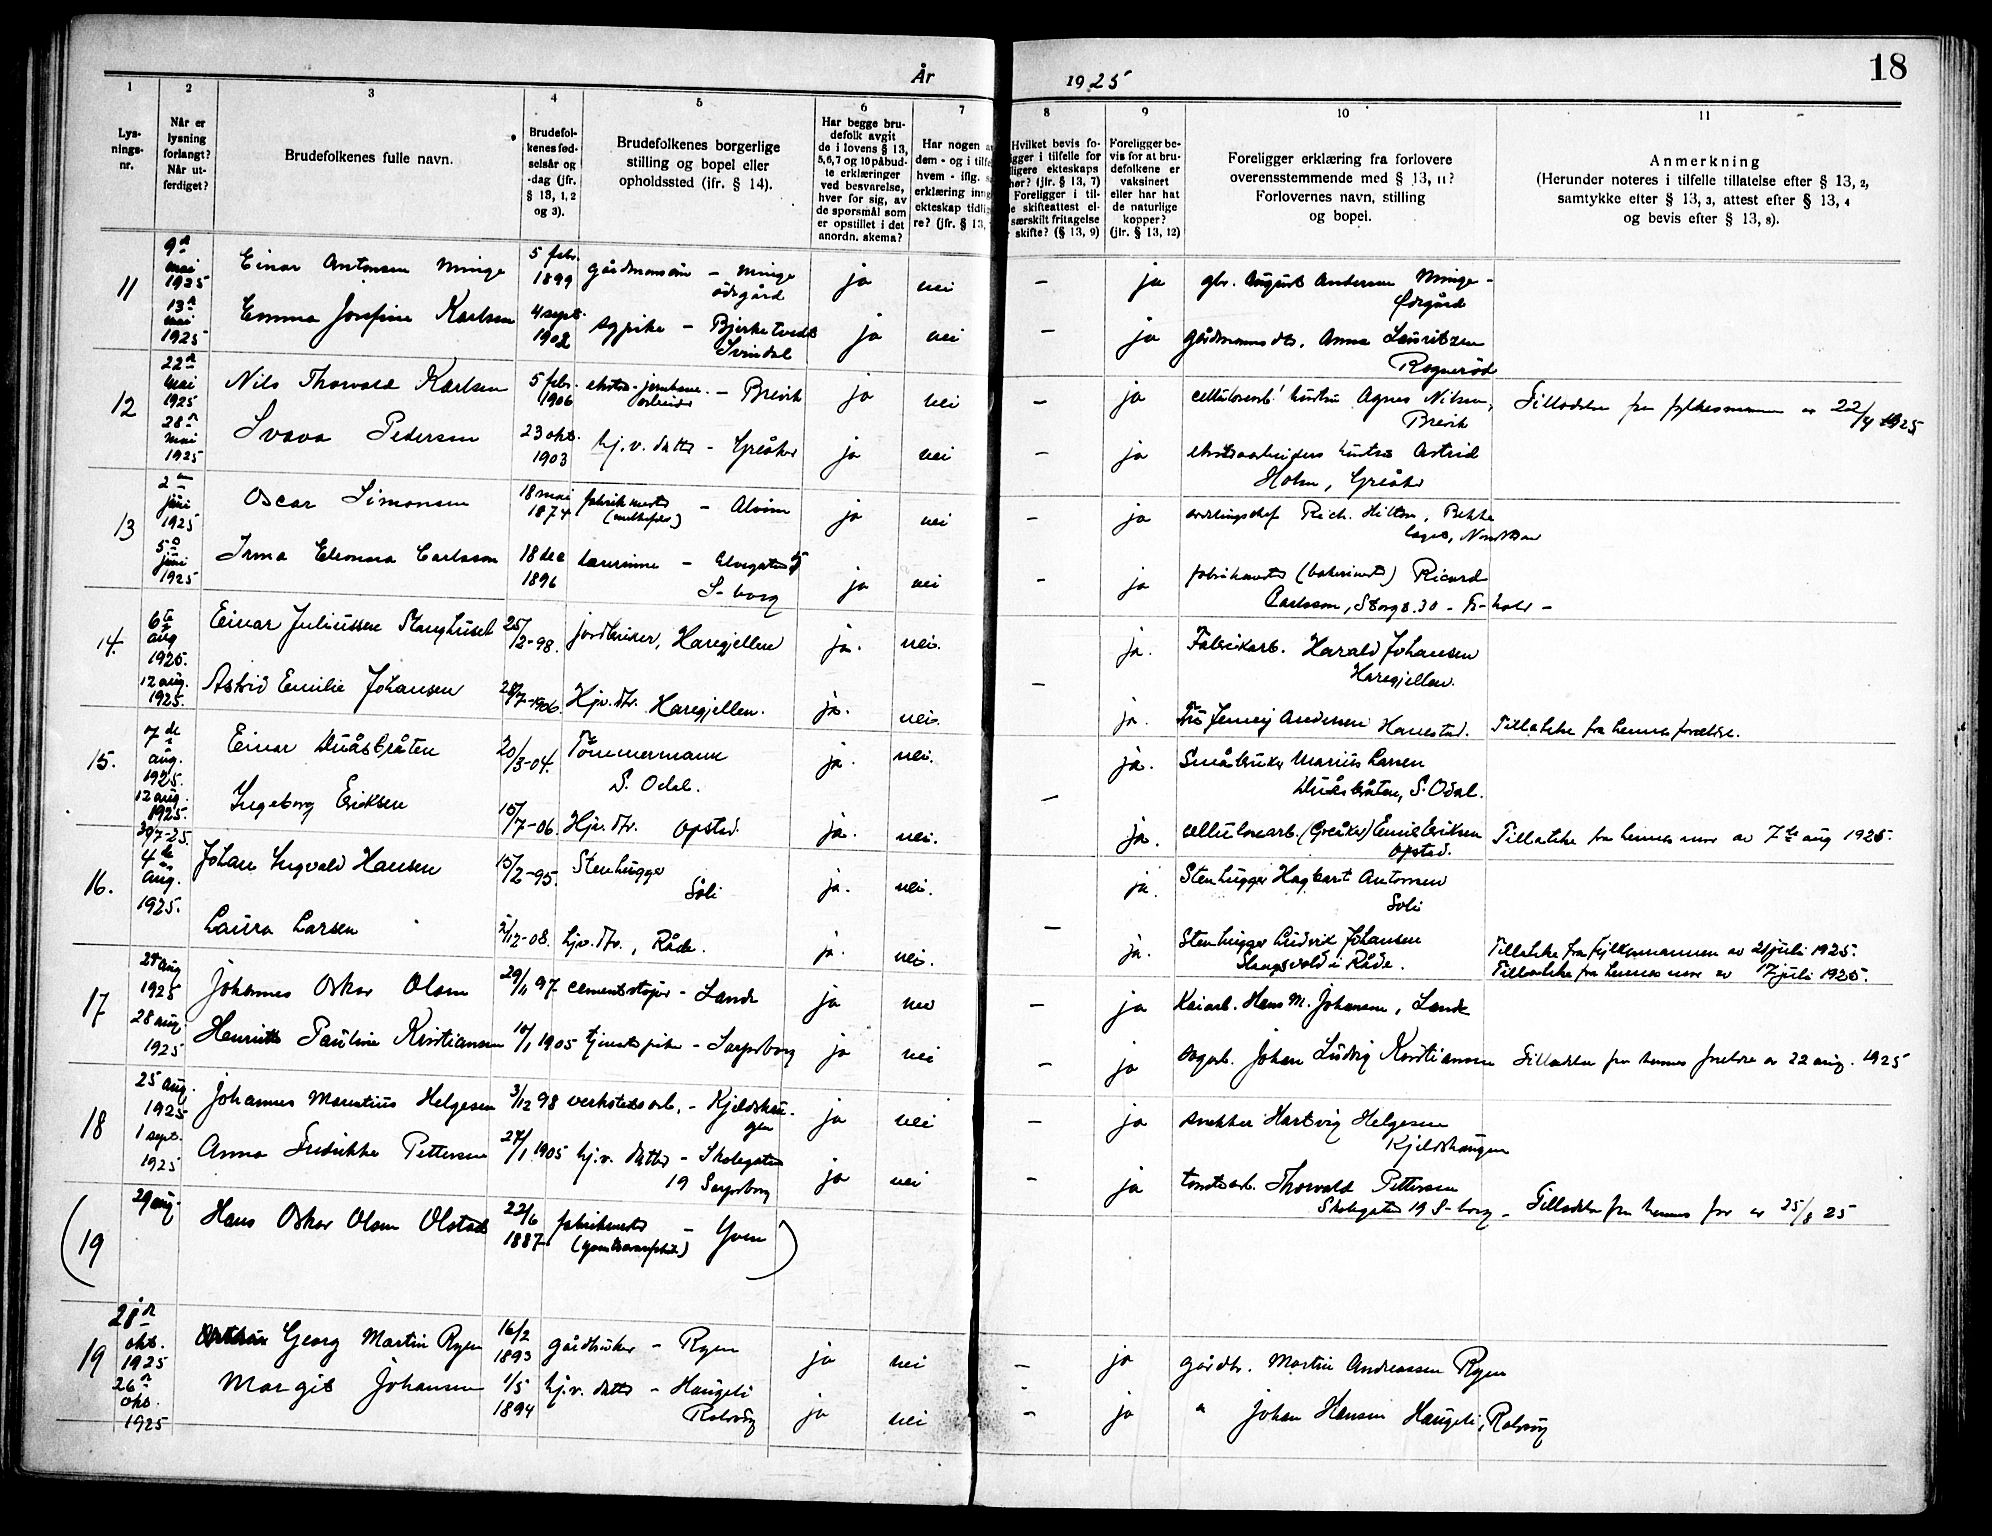 År 1925
18
1
2
3
4
5
6
7
8
9
10
11
Lys-
nings-
nr.
Når er
lysning
forlangt?
Når ut-
ferdiget?
Brudefolkenes fulle navn.
Brudefol-
kenes fød-
selsår og
-dag (jfr.
§ 13, 1, 2
og 3).
Brudefolkenes borgerlige
stilling og bopel eller
opholdssted (jfr. § 14).
Har begge bru-
defolk avgit
de i lovens § 13,
5, 6, 7 og 10 påbud-
te erklæringer
ved besvarelse,
hver for sig, av
de spørsmål som
er opstillet i det
anordn. skema?
Har nogen a
dem - og i tilfe
hvem - iflg. s
erklæring inng
ekteskap tidli
re? (jfr. § 13,
Hvilket bevis fo-
igger i tilfelle for
ligere ekteskaps
hør? (jfr. § 13, 7)
Foreligger i til-
e skifteattest el-
særskilt fritagelse
skifte? (§ 13, 9)
Foreligger be-
vis for at bru-
defolkene er
vaksinert
eller har hat
de naturlige
kopper?
(jfr. § 13, 12)
Foreligger erklæring fra forlovere
overensstemmende med § 13, 11?
Forlovernes navn, stilling
og bopel.
Anmerkning
(Herunder noteres i tilfelle tillatelse efter § 13, 2,
samtykke efter § 13, 3, attest efter § 13, 4
og bevis efter § 13, 8).
11
9de mai 1925
Einar Antonsen Minge
5 febr. 1899
gårdmannssøn - Minge
ødegård
ja nei - ja
gbr. August Andersen Minge -
Ødegård
13de mai 1925
Emma Josefine Karlsen
4 sept. 1902
sypike - Bjerketvedt
Svindal
ja nei - ja
gårdmannsdtr. Anna Lauritzen
Rognerød
12
22de mai 1925
Nils Thorvald Karlsen
5 febr. 1906
ekstra-jernbane
arbeider - Brevik
ja nei - ja
cellulosearb. hustru Agnes Nilsen,
Brevik
Tilladelse fra fylkesmannen av 22/4 1925
28de mai 1925
Svava Pedersen
23 okt. 1903
hj.v. datter - Greåker
ja nei - ja
ekstraarbeiders hustru Astrid
Holm, Greåker
13
2den juni 1925
Oscar Simonsen
18 mai 1874
fabrikmester
- Alvim
ja nei - ja
avdelingschef Rich. Hilton, Bekke
5te juni 1925
Irma Eleonora Carlsson
18 dec 1896
lærerinne - Elvegaten 5
S-borg
ja nei - ja
fabrikmester (bakermester) Ricard
Carlsson, Storgt. 30 - Fr-hald -
14.
6te aug 1925.
Einar Juliussen Stanghuset
25/2-98.
jordbruker, Haregjellen
ja. nei. ja.
Fabrikarb. Harald Johansen
Haregjellen.
12 aug. 1925.
Astrid Emilie Johansen
28/7-1906.
Hjv. dtr. Haregjellen.
- ja. nei. ja.
Fru Jenny Andersen Hanestad.
Tillatelse fra hennes forældre.
15.
7de aug. 1925.
Einar Duåsbråten
20/3-04.
Tømmermann
S. Odal.
ja. nei. ja.
Småbruker Marius Larsen
Duåsbråten, S. Odal.
12 aug. 1925.
Ingeborg Eriksen
15/7-06.
Hjv. dtr. Opstad.
- ja. nei. ja.
cellulosearb. (Greåker) Emil Eriksen
Opstad.
Tillatelse fra hennes mor av 7de aug 1925.
16.
30/7-25.
4de aug. 1925.
Johan Ingvald Hansen
15/2-95.
Stenhugger
Soli
ja. nei. ja.
Stenhugger Hagbart Antonsen
Soli
Laura Larsen
2/12-08.
hjv. dtr., Råde.
- ja. nei. ja.
Stenhugger Ludvik Johansen
Slangsvold i Råde.
Tillatelse fra fylkesmannen av 21 juli 1925.
Tillatelse fra hennes mor av 17 juli 1925.
17
24 aug 1925
Johannes Oskar Olsen
29/11 97
cementstøper - Lande
ja nei - ja
Kaiarb. Hans M. Johansen, Lande
28 aug. 1925
Henriette Pauline Kristiansen
10/1 1905
tjenestepike - Sarpsborg
ja nei - ja
sagarb. Johan Ludvig Kristiansen
Tilladelse fra hennes foreldre av 22 aug. 1925
18
25 aug. 1925
Johannes Mauritius Helgesen
3/12 98
verkstedsarb. - Kjeldshau-
gen
ja nei - ja
snekker Hartvig Helgesen
Kjeldshaugen
1 sept. 1925
Anna Fredrikke Pettersen
27/1 1905
hj.v. datter - Skolegaten
19 Sarpsborg
ja nei - ja
tomtearb. Thorvald Pettersen
Skolegaten 19 S-borg -
Tilladelse fra hennes far av 25/8 25
(19
29 aug.
Hans Oskar Olsen Olstad
22/6 1887
fabrikmester
- Yven)
19
28de okt. 1925
Georg Martin Ryen
16/2 1893
gårdbruker - Ryen
ja nei - ja
gårdbr. Martin Andreassen Ryen
26de okt. 1925
Margit Johansen
1/5 1894
hj.v. datter - Haugeli
Rolvsøy
ja nei - ja
" Johan Hansen Haugeli, Rolvsøy